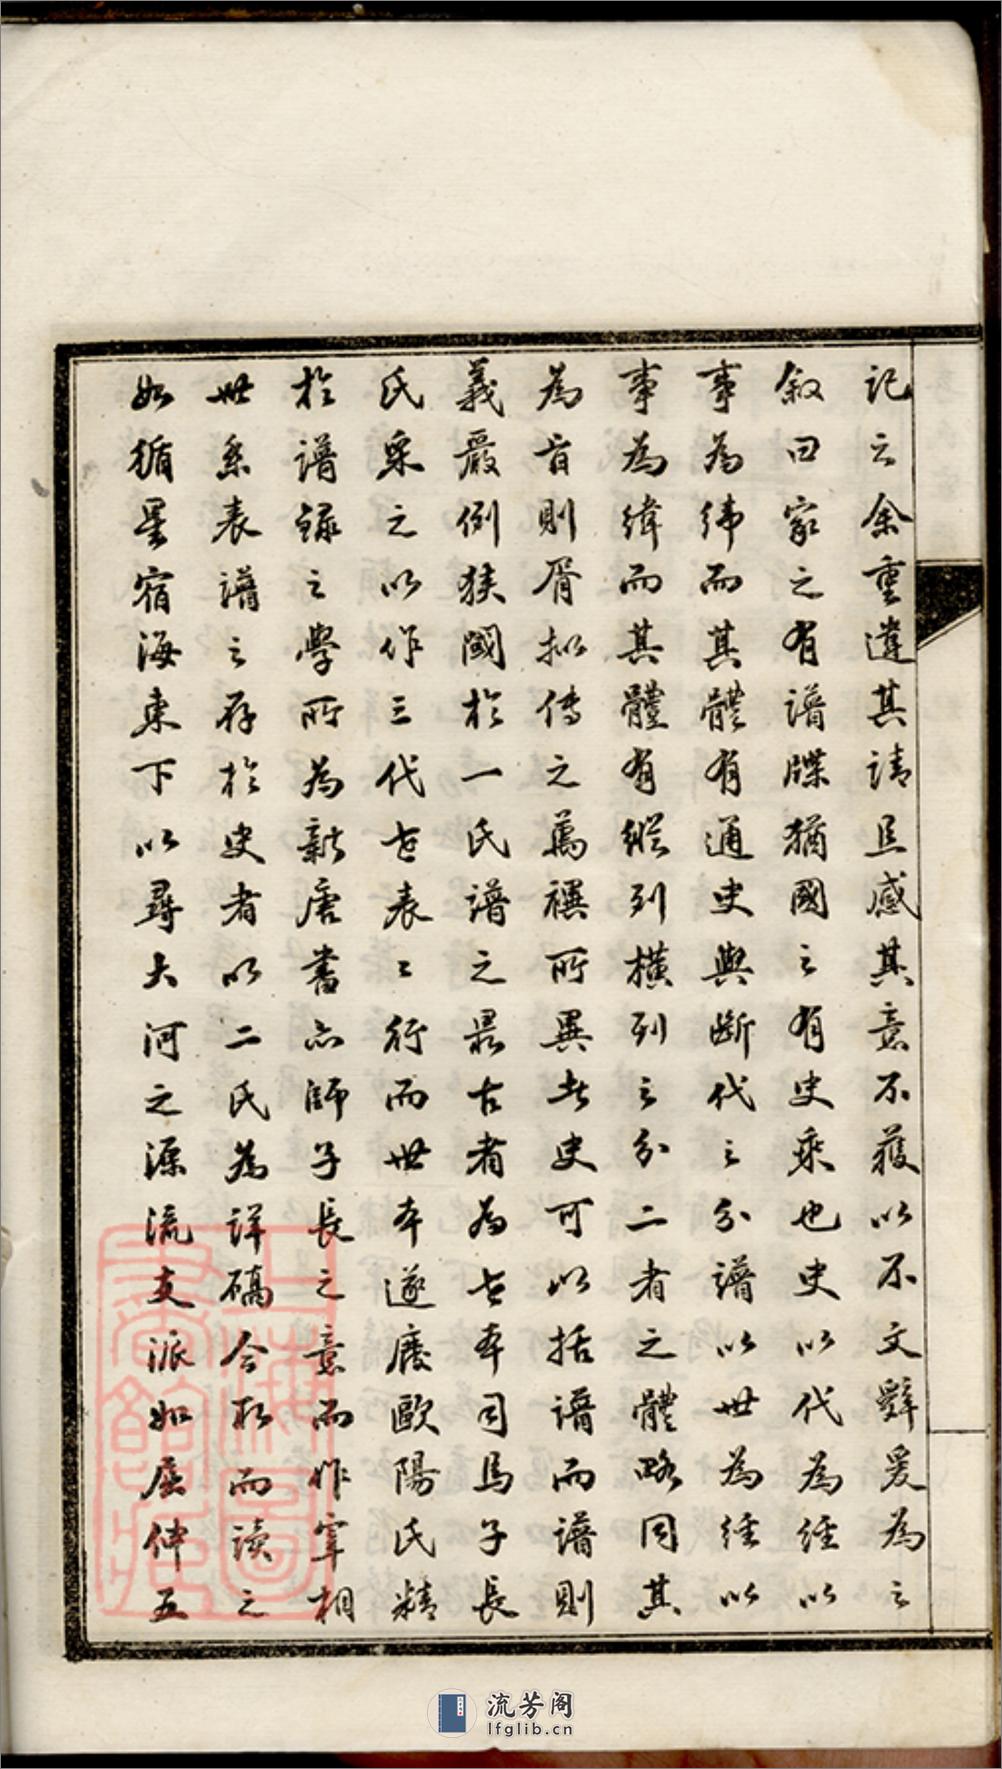 記之余重違其請且感其意不獲以不文辭爰為之
敘曰家之有譜牒猶國之有史乘也史以代為經以
事為緯而其體有通史與斷代之分譜以世為經以
事為緯而其體有縱列橫列之分二者之體略同其
為旨則胥擬傳之萬禩所異者史可以括譜而譜則
義嚴例狹國於一氏譜之最古者為世本司馬子長
氏采之以作三代世表表行而世本遂廢歐陽氏精
於譜錄之學所為新唐書亦師子長之意而作宰相
世系表譜之存於史者以二氏為詳碻今取而讀之
如循星宿海東下以尋大河之源流支派如屈伸五
上海圖書館藏
流芳阁
lfglib.cn